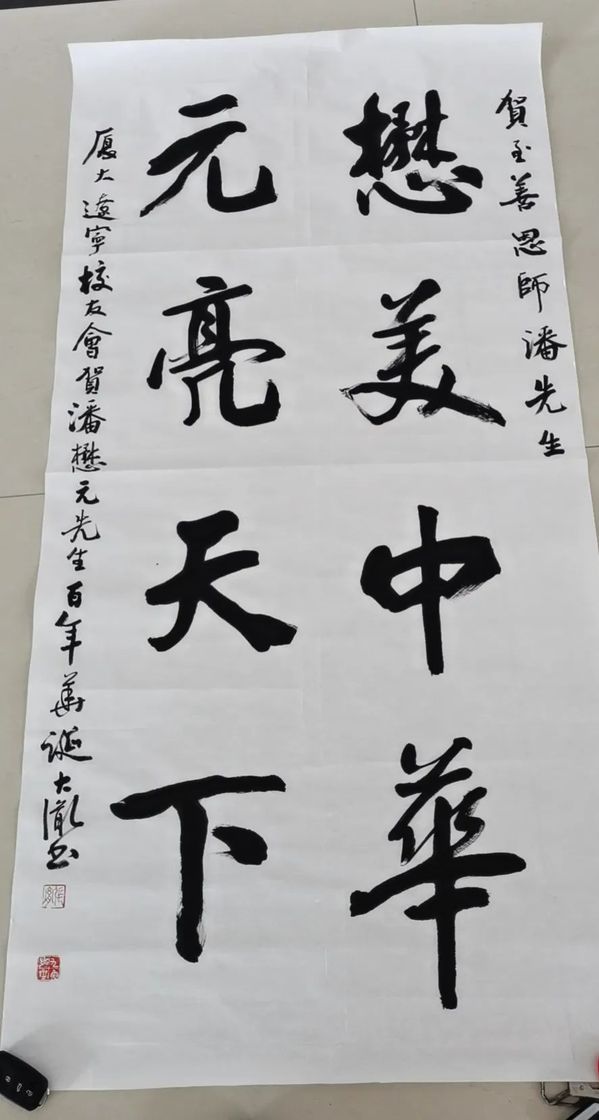 賀至善恩師潘先生
懋美中華
元亮天下
厦大遼寧校友會賀潘懋元先生百年華誕大澂书